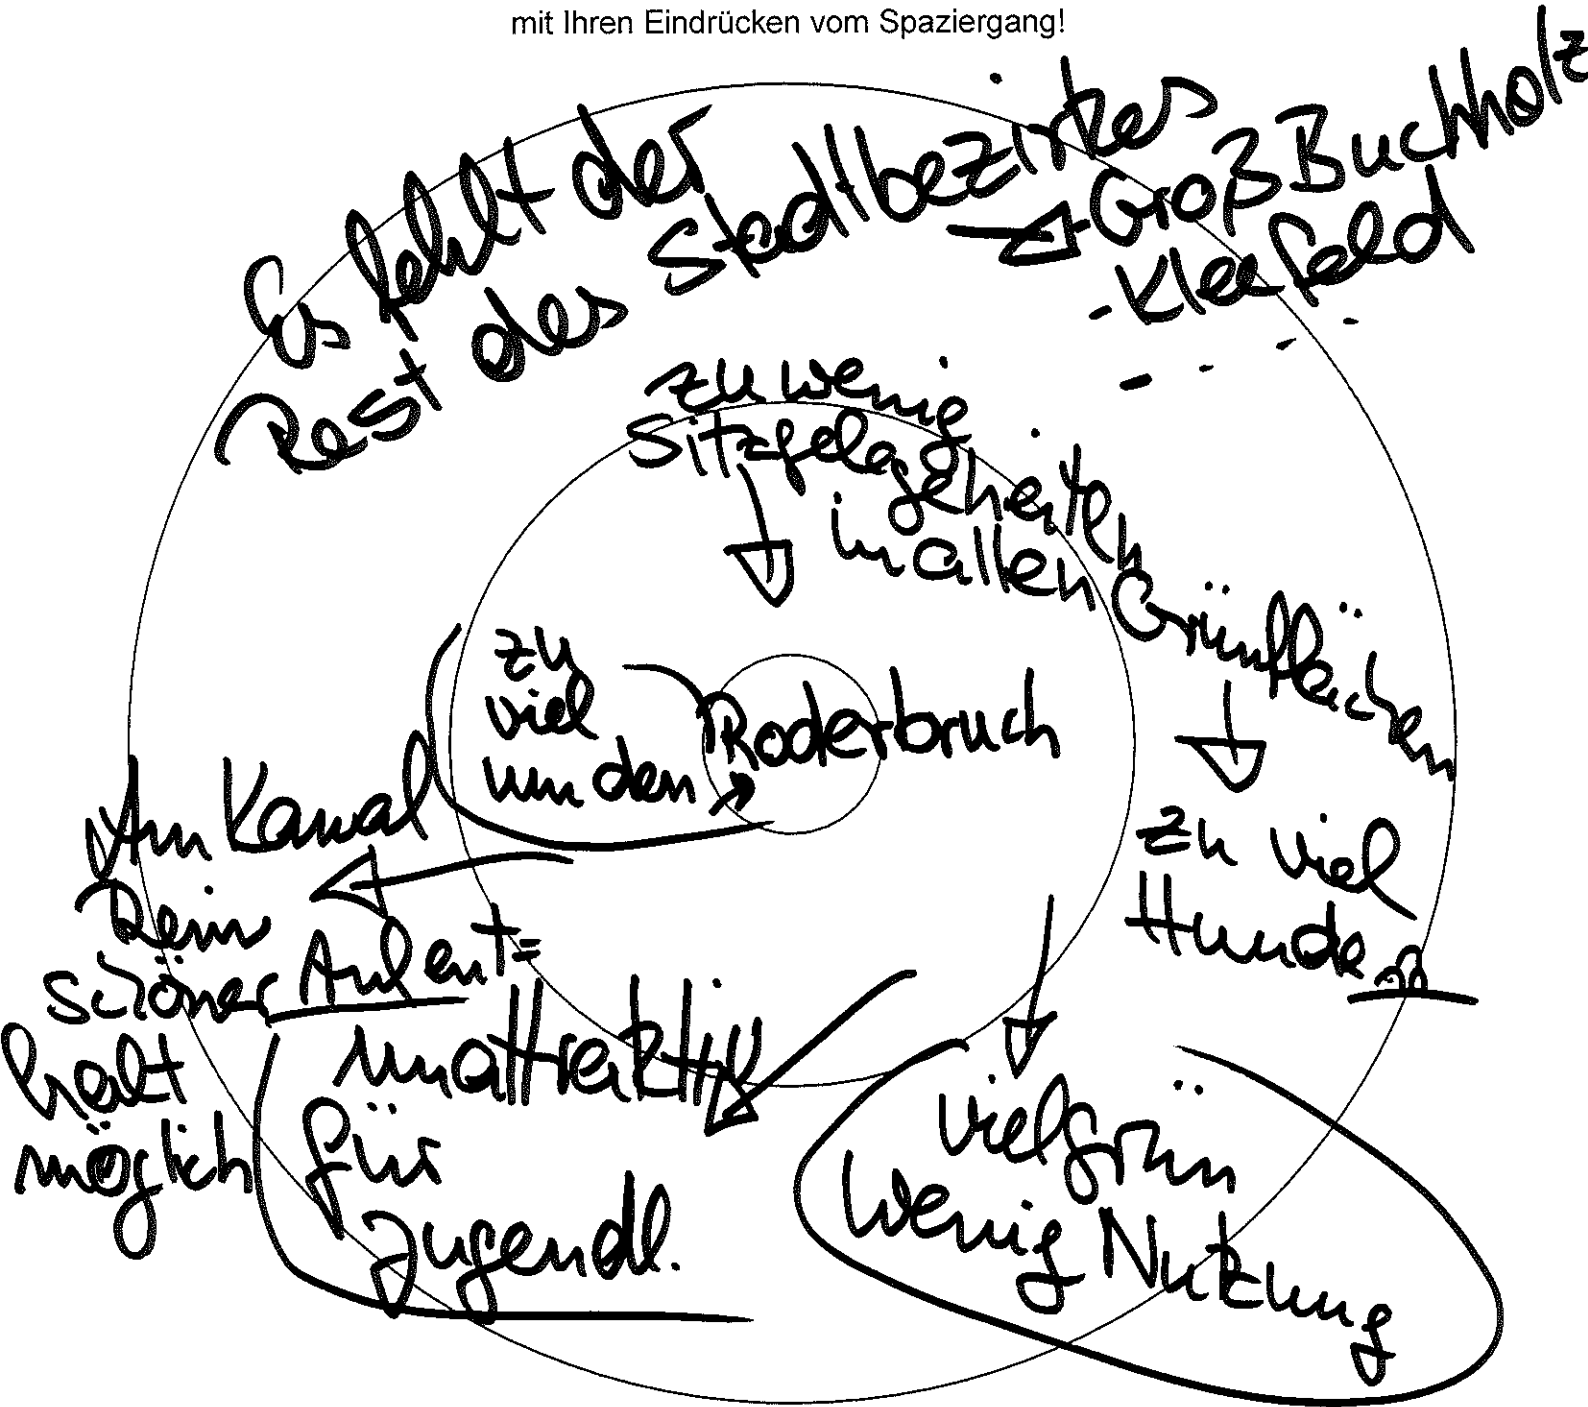 mit Ihren Eindrücken vom Spaziergang!
Es fehlt der
Rest des Stadtbezirkes
Groß Buchholz
- Kleefeld
zu wenig
Sitzgelegenheiten
in allen
Grünflächen
zu
viel
um den
Roderbruch
Am Kanal
kein
schöner Aufent=
halt
möglich
zu viel
Hunde
unattraktiv
für
Jugendl.
viel grün
wenig Nutzung